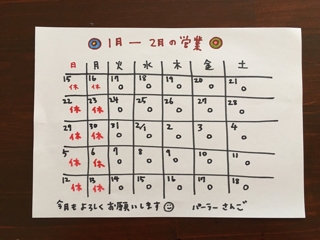 1月ー2月の営業
日 月 火 水 木 金 土
15 16 17 18 19 20 21
休 休 ○ ○ ○ ○ ○
22 23 24 25 26 27 28
休 休 ○ ○ ○ ○ ○
29 30 31 2/1 2 3 4
休 休 ○ ○ ○ ○ ○
5 6 7 8 9 10 11
休 休 ○ ○ ○ ○ ○
12 13 14 15 16 17 18
休 休 ○ ○ ○ ○ ○
今月もよろしくお願いします☺ パーラーさんご